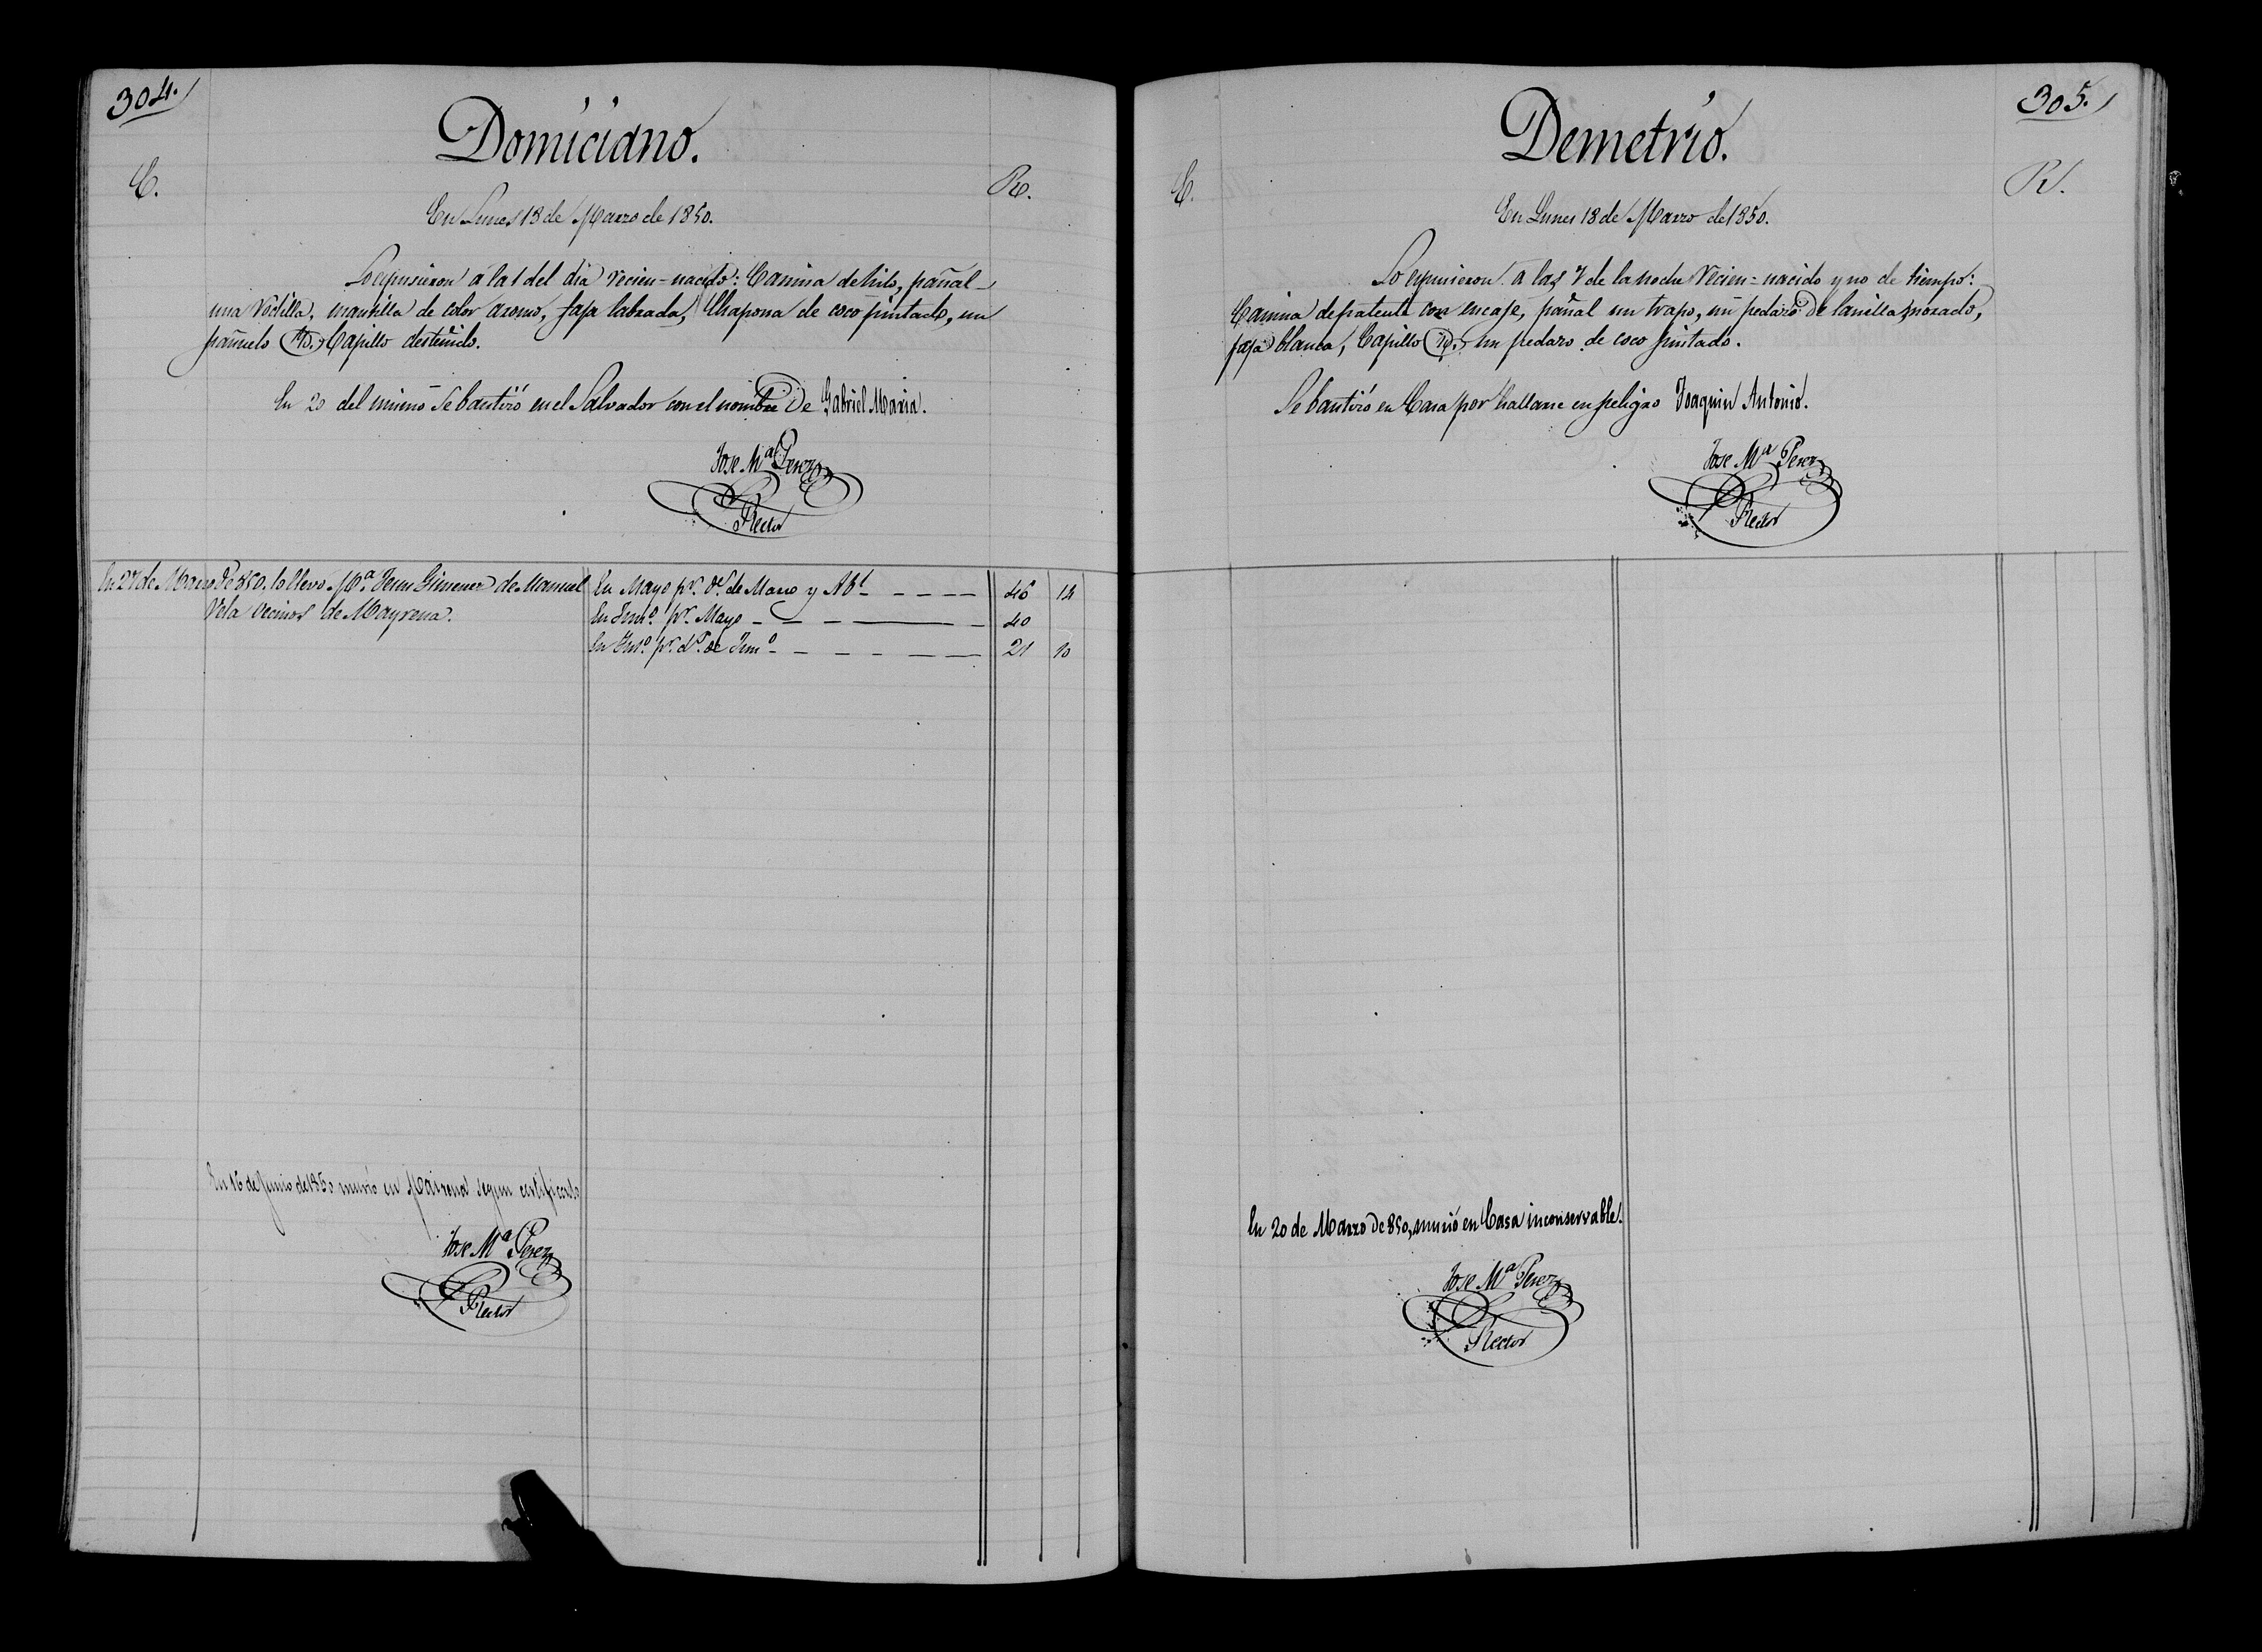 304.
Domiciano.
C.
R.
En Lunes 18 de Marzo de 1850.
Lo expusieron á la 1 del dia recien-nacido: Camisa de hilo, pañal
una rodilla, mantilla de color aromo, faja labrada, Chapona de coco pintado, un
pañuelo id. Capillo desteñido.
En 20 del mismo se bautizó en el Salvador con el nombre de Gabriel Maria.
Jose Mª Perez
Rector
En 27 de Marzo de 850. lo llevo Mª Jesus Gimenez de Manuel
Vela vecinos de Mayrena.
En Mayo pr. ds. de Marzo y Abl 46 14
En Juno. pr. Mayo 40
En Juno. pr. ds. de Juno 21 10
En 16 de Junio de 1850 murió en Mairena segun certificado
Jose Mª Perez
Rector
305.
Demetrio.
C.
R.
En Lunes 18 de Marzo de 1850.
Lo expusieron á las 7 de la noche recien-nacido y no de tiempo:
Camisa de patente con encaje, pañal un trapo, un pedazo de lanilla morado,
faja blanca, Capillo id. un pedazo de coco pintado.
Se bautizó en Casa por hallarse en peligro Joaquin Antonio.
Jose Mª Perez
Rector
En 20 de Marzo de 850, murió en Casa inconservable.
Jose Mª Perez
Rector